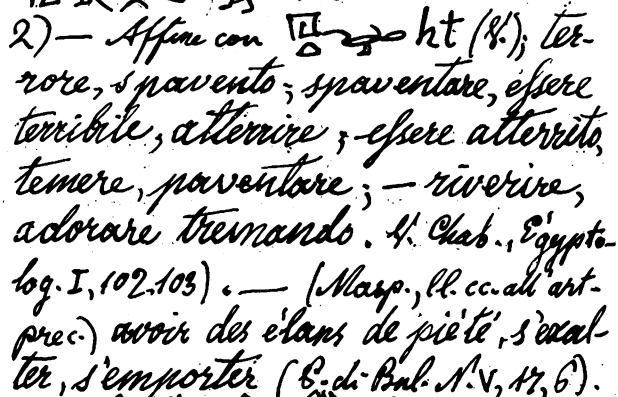 2) — Affine con ht (V.); ter-
rore, spavento; spaventare, essere
terribile, atterrire; essere atterrito,
temere, paventare; — riverire,
adorare tremando. V. Chab., Égypto-
log. I, 102.103). — (Masp., ll. cc. all'art-
prec.) avoir des élans de piété, s'exal-
ter, s'emporter (P. di Bul. N. V, 17, 6).